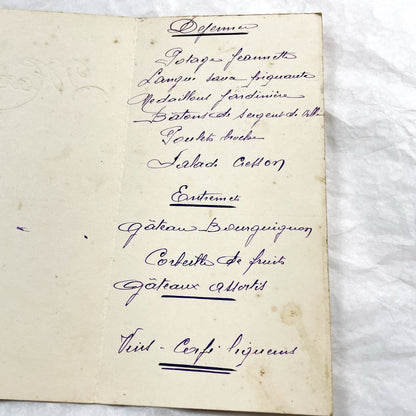 Dejeuner
Potage Jeannette
Langue sauce piquante
Médaillons Jardinière
Bâtons de sergent de ville
Poulets broche
Salade Cresson
Entremets
Gâteau Bourguignon
Corbeille de fruits
Gâteaux assortis
Vins - Café liqueurs